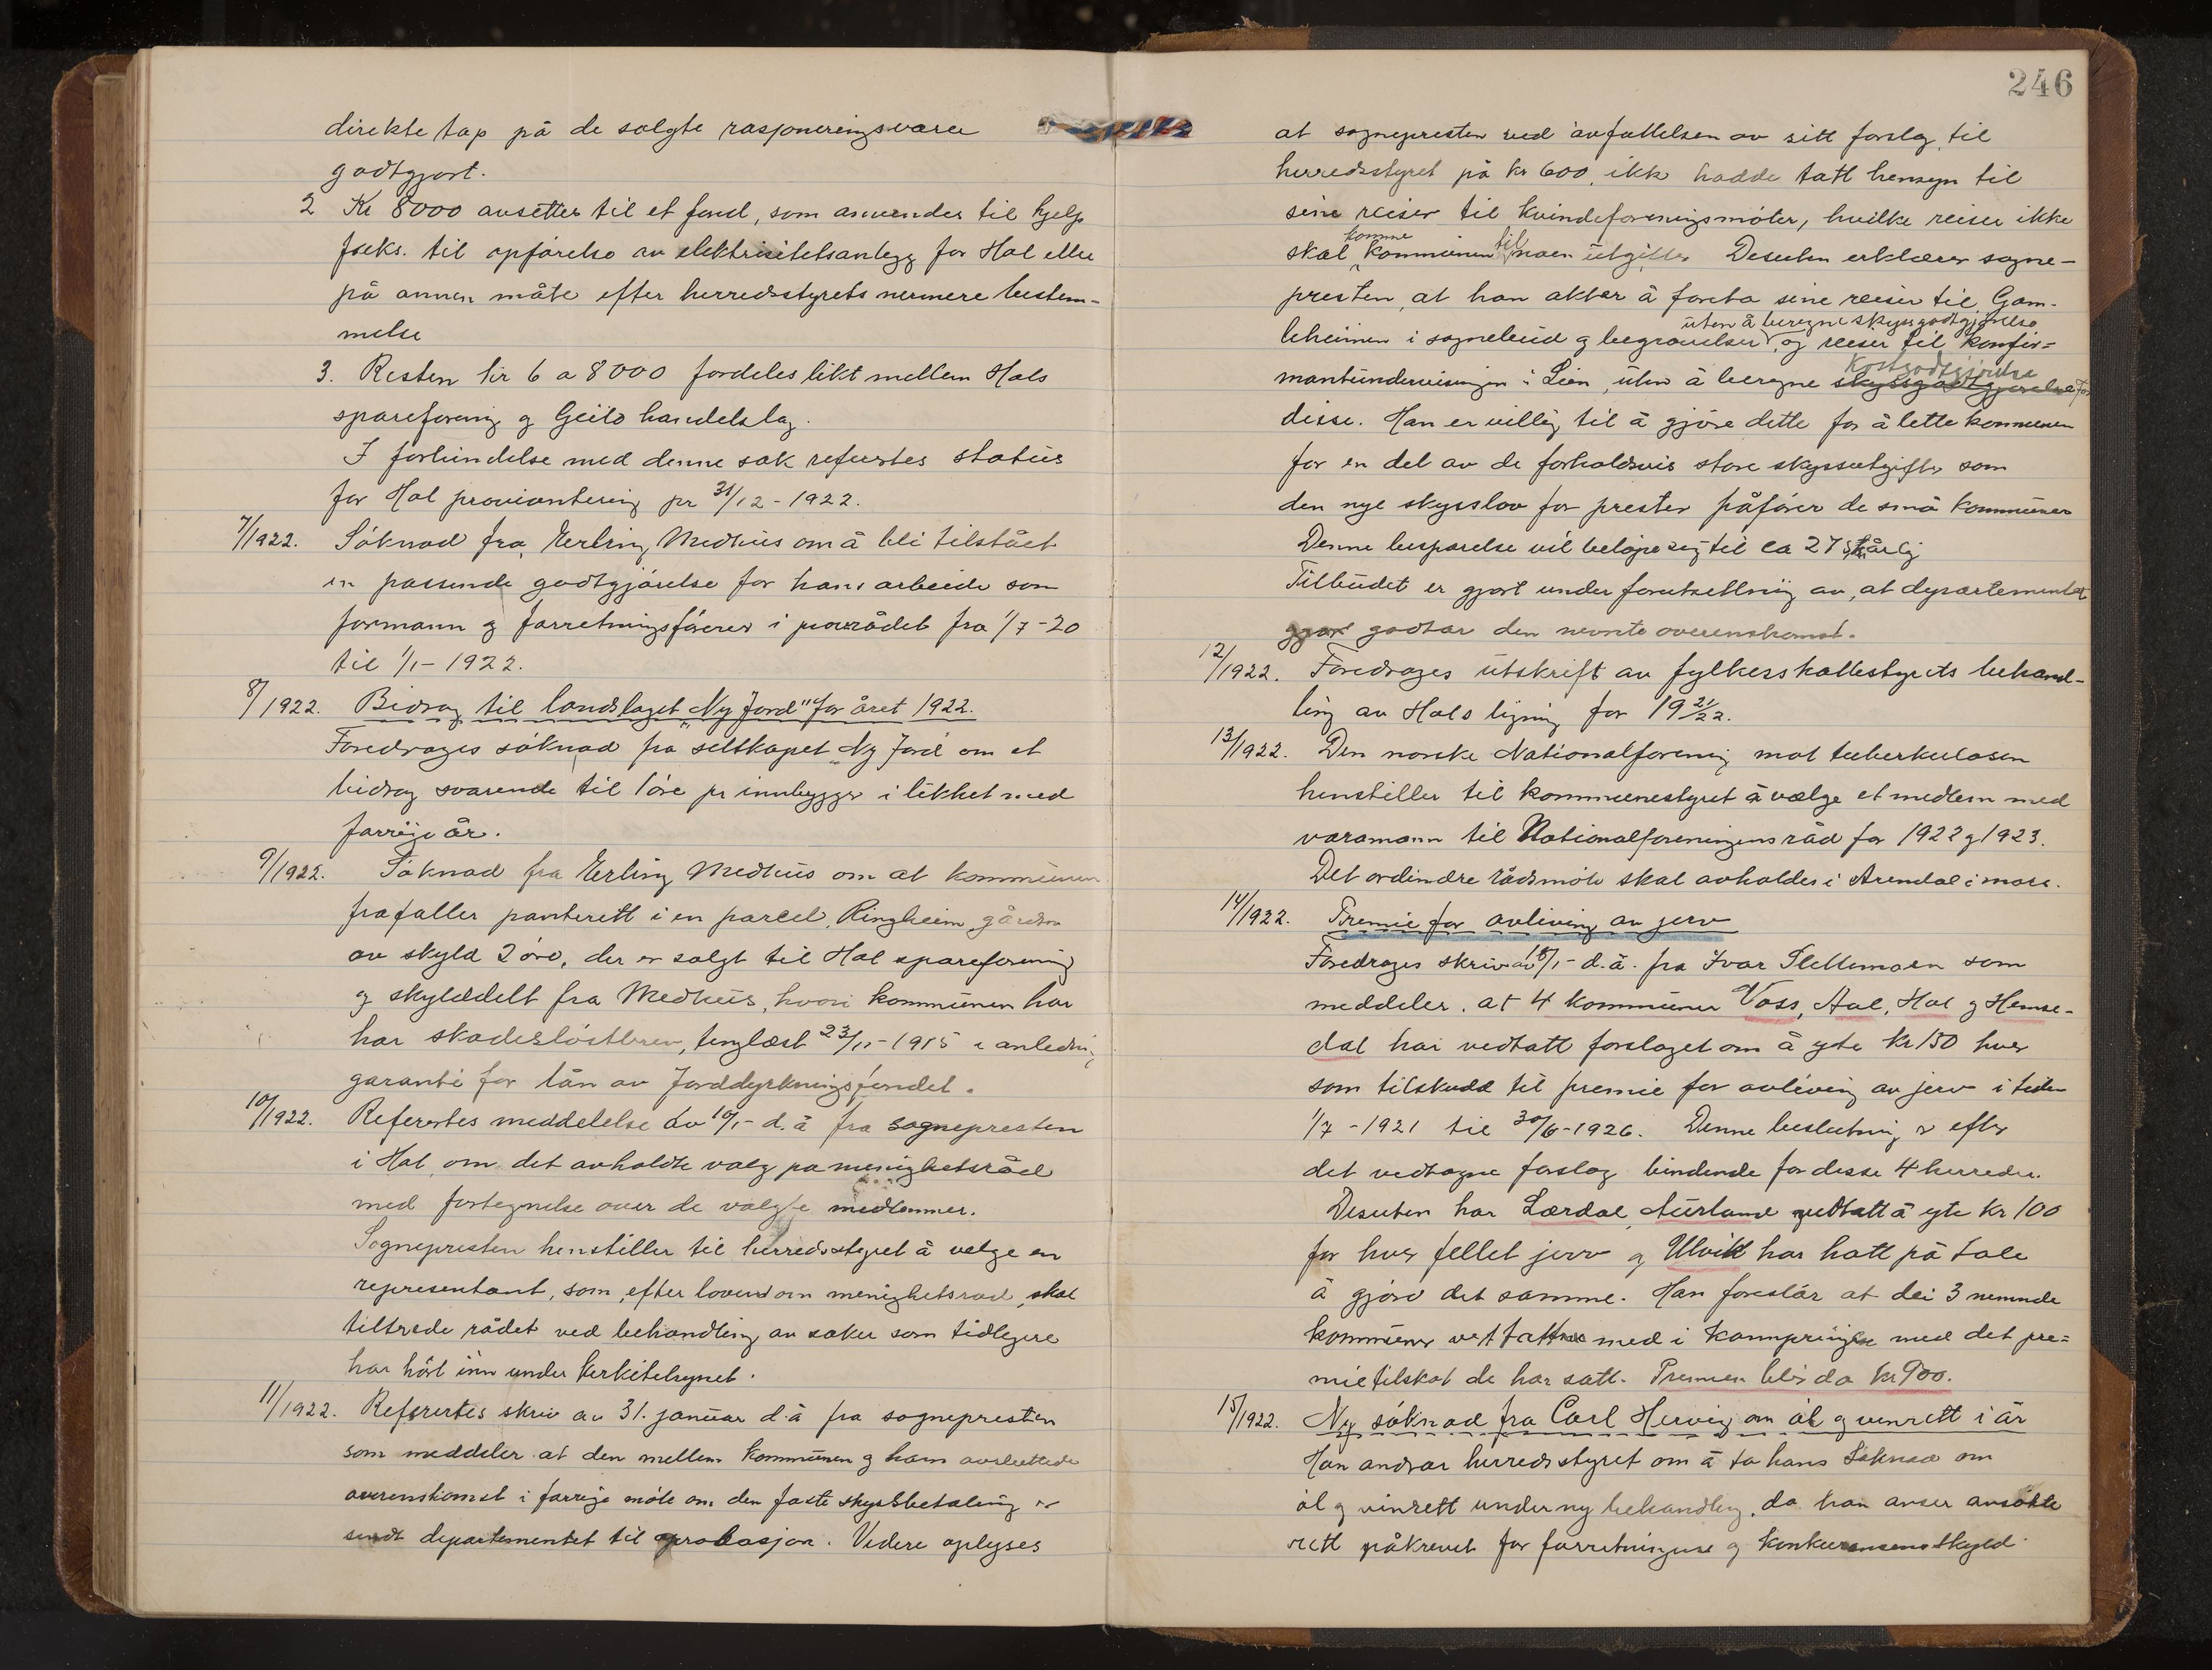 direkte tap på de solgte rasjoneringsvarer
godtgjort.
2 Kr 8000 avsettes til et fond, som anvendes til hjelp
f.eks. til opførelse av elektrisitetsanlegg for Hol eller
på annen måte efter herredsstyrets nermere bestem-
melse
3. Resten kr 6 a 8000 fordeles likt mellem Hols
spareforening og Geilo handelslag.
I forbindelse med denne sak refertes status
for Hol proviantering pr 31/12-1922.
7/1922. Söknad fra Erling Medhus om å bli tilstået
en passende godtgjörelse for hans arbeide som
formann og forretningsförer i provrådet fra 1/7-20
til 1/1-1922.
8/1922. Bidrag til landslaget "Ny Jord" for året 1922.
Foredrages söknad fra selskapet "Ny Jord om et
bidrag svarende til 1 öre pr innbygger i likhet med
forrige år.
9/1922. Söknad fra Erling Medhus om at kommunen
frafaller panterett i en parcel, Ringheim gården
av skyld 2 öre, der er solgt til Hol spareforening
og skylddelt fra Medhus, hvori kommunen har
har skadeslöstbrev, tinglæst 23/11-1915 i anledning
garanti for lån av Jorddyrkningsfondet.
10/1922. Refertes meddelelse av 10/1- d.å fra sognepresten
i Hol, om det avholdte valg på menighetsråd
med fortegnelse over de valgte medlemmer.
Sognepresten henstiller til herredsstyret å velge en
representant, som, efter loven om menighetsråd, skal
tiltrede rådet ved behandling av saker som tidligere
har hört inn under kirketilsynet.
11/1922. Refertes skriv av 31. januar d.å fra sognepresten
som meddeler at den mellem kommunen og ham avsluttede
overenskomst i forrige möte om den faste skyssbetaling er
sendt departementet til aprobasjon. Videre oplyses
246
at sognepresten ved avfattelsen av sitt forslag til
herredsstyret på kr 600, ikke hadde tatt hensyn til
sine reiser til kvindeforeningsmöter, hvilke reiser ikke
skal komme kommunen til noen utgifter Desuten erklærer sogne-
presten, at han akter å foreta sine reiser til Gam-
uten å beregne skyssgodtgjörelse
leheimen i sognebud og begravelser, og reiser til konfir=
kostgodtgjörelse
mantundervisningen i Lien, uten å beregne skyssgodtgjörelse for
disse. Han er villig til å gjöre dette for å lette kommunen
for en del av de forholdsvis store skyssutgifter som
den nye skysslov for prester påförer de små kommuner
Denne besparelse vil belöpe sig til ca 275 kr årlig
Tilbudet er gjort under forutsettning av, at departementet
gjort godtar den nevnte overenskomst.
12/1922. Foredrages utskrift av fylkesskattestyrets behand-
ling av Hols ligning for 19 21/22.
13/1922. Den norske Nationalforening mot tuberkulosen
henstiller til kommunestyret å vælge et medlem med
varamann til Nationalforeningens råd for 1922 og 1923.
Det ordinære rådsmöte skal avholdes i Arendal i mars.
14/1922. Premie for avliving av jerv
Foredrages skriv av 18/1- d.å. fra Ivar Slettemoen som
meddeler, at 4 kommuner Voss, Aal, Hol og Hemse-
dal har vedtatt forslaget om å yte kr 150 hver
som tilskudd til premie for avliving av jerv i tiden
1/7-1921 til 30/6-1926. Denne beslutning er efter
det vedtagne forslag bindende for disse 4 herreder.
Desuten har Lærdal, Aurland vedtatt å yte kr 100
for hver fellet jerv og Ulvik har hatt på tale
å gjöre det samme. Han foreslår at dei 3 nemnde
kommuner vert tatt med i kunngjöringa med det pre=
mietilskot de har satt. Premien blir da kr 900.
15/1922. Ny söknad fra Carl Hervig om öl og vinrett i år
Han andrar herredsstyret om å ta hans söknad om
öl og vinrett under ny behandling, da han anser ansökte
rett påkrevet for forretningens og konkurransens skyld